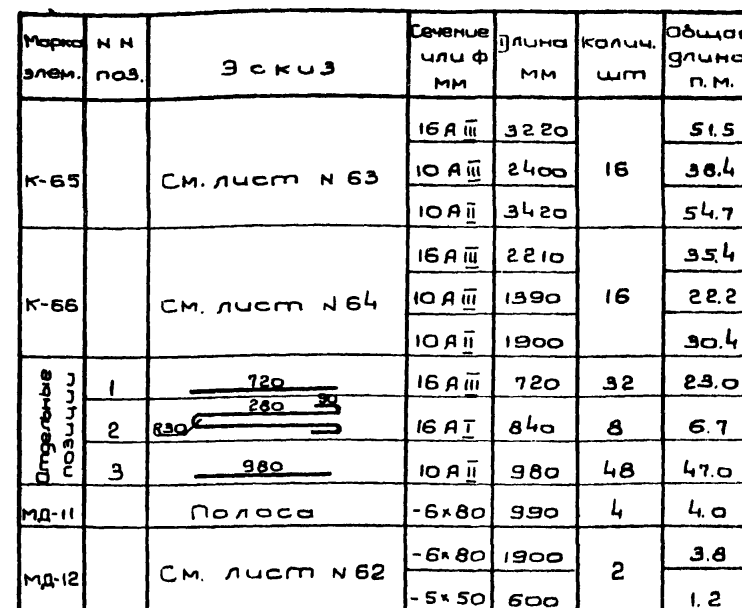 Марка элем. | N N поз. | Эскиз | Сечение или Ф мм | Длина мм | колич. шт | Общая длина п.м.
К-65 | См. лист N 63 | 16 А III | 3220 | 16 | 51.5
10 А III | 2400 | 38.4
10 А II | 3420 | 54.7
К-66 | См. лист N 64 | 16 А III | 2210 | 16 | 35.4
10 А III | 1390 | 22.2
10 А II | 1900 | 30.4
Отдельные позиции | 1 | 720 | 16 А III | 720 | 32 | 23.0
2 | R30 280 90 | 16 А I | 840 | 8 | 6.7
3 | 980 | 10 А II | 980 | 48 | 47.0
МД-11 | Полоса | -6×80 | 990 | 4 | 4.0
МД-12 | См. лист N 62 | -6×80 | 1900 | 2 | 3.8
-5×50 | 600 | 1.2